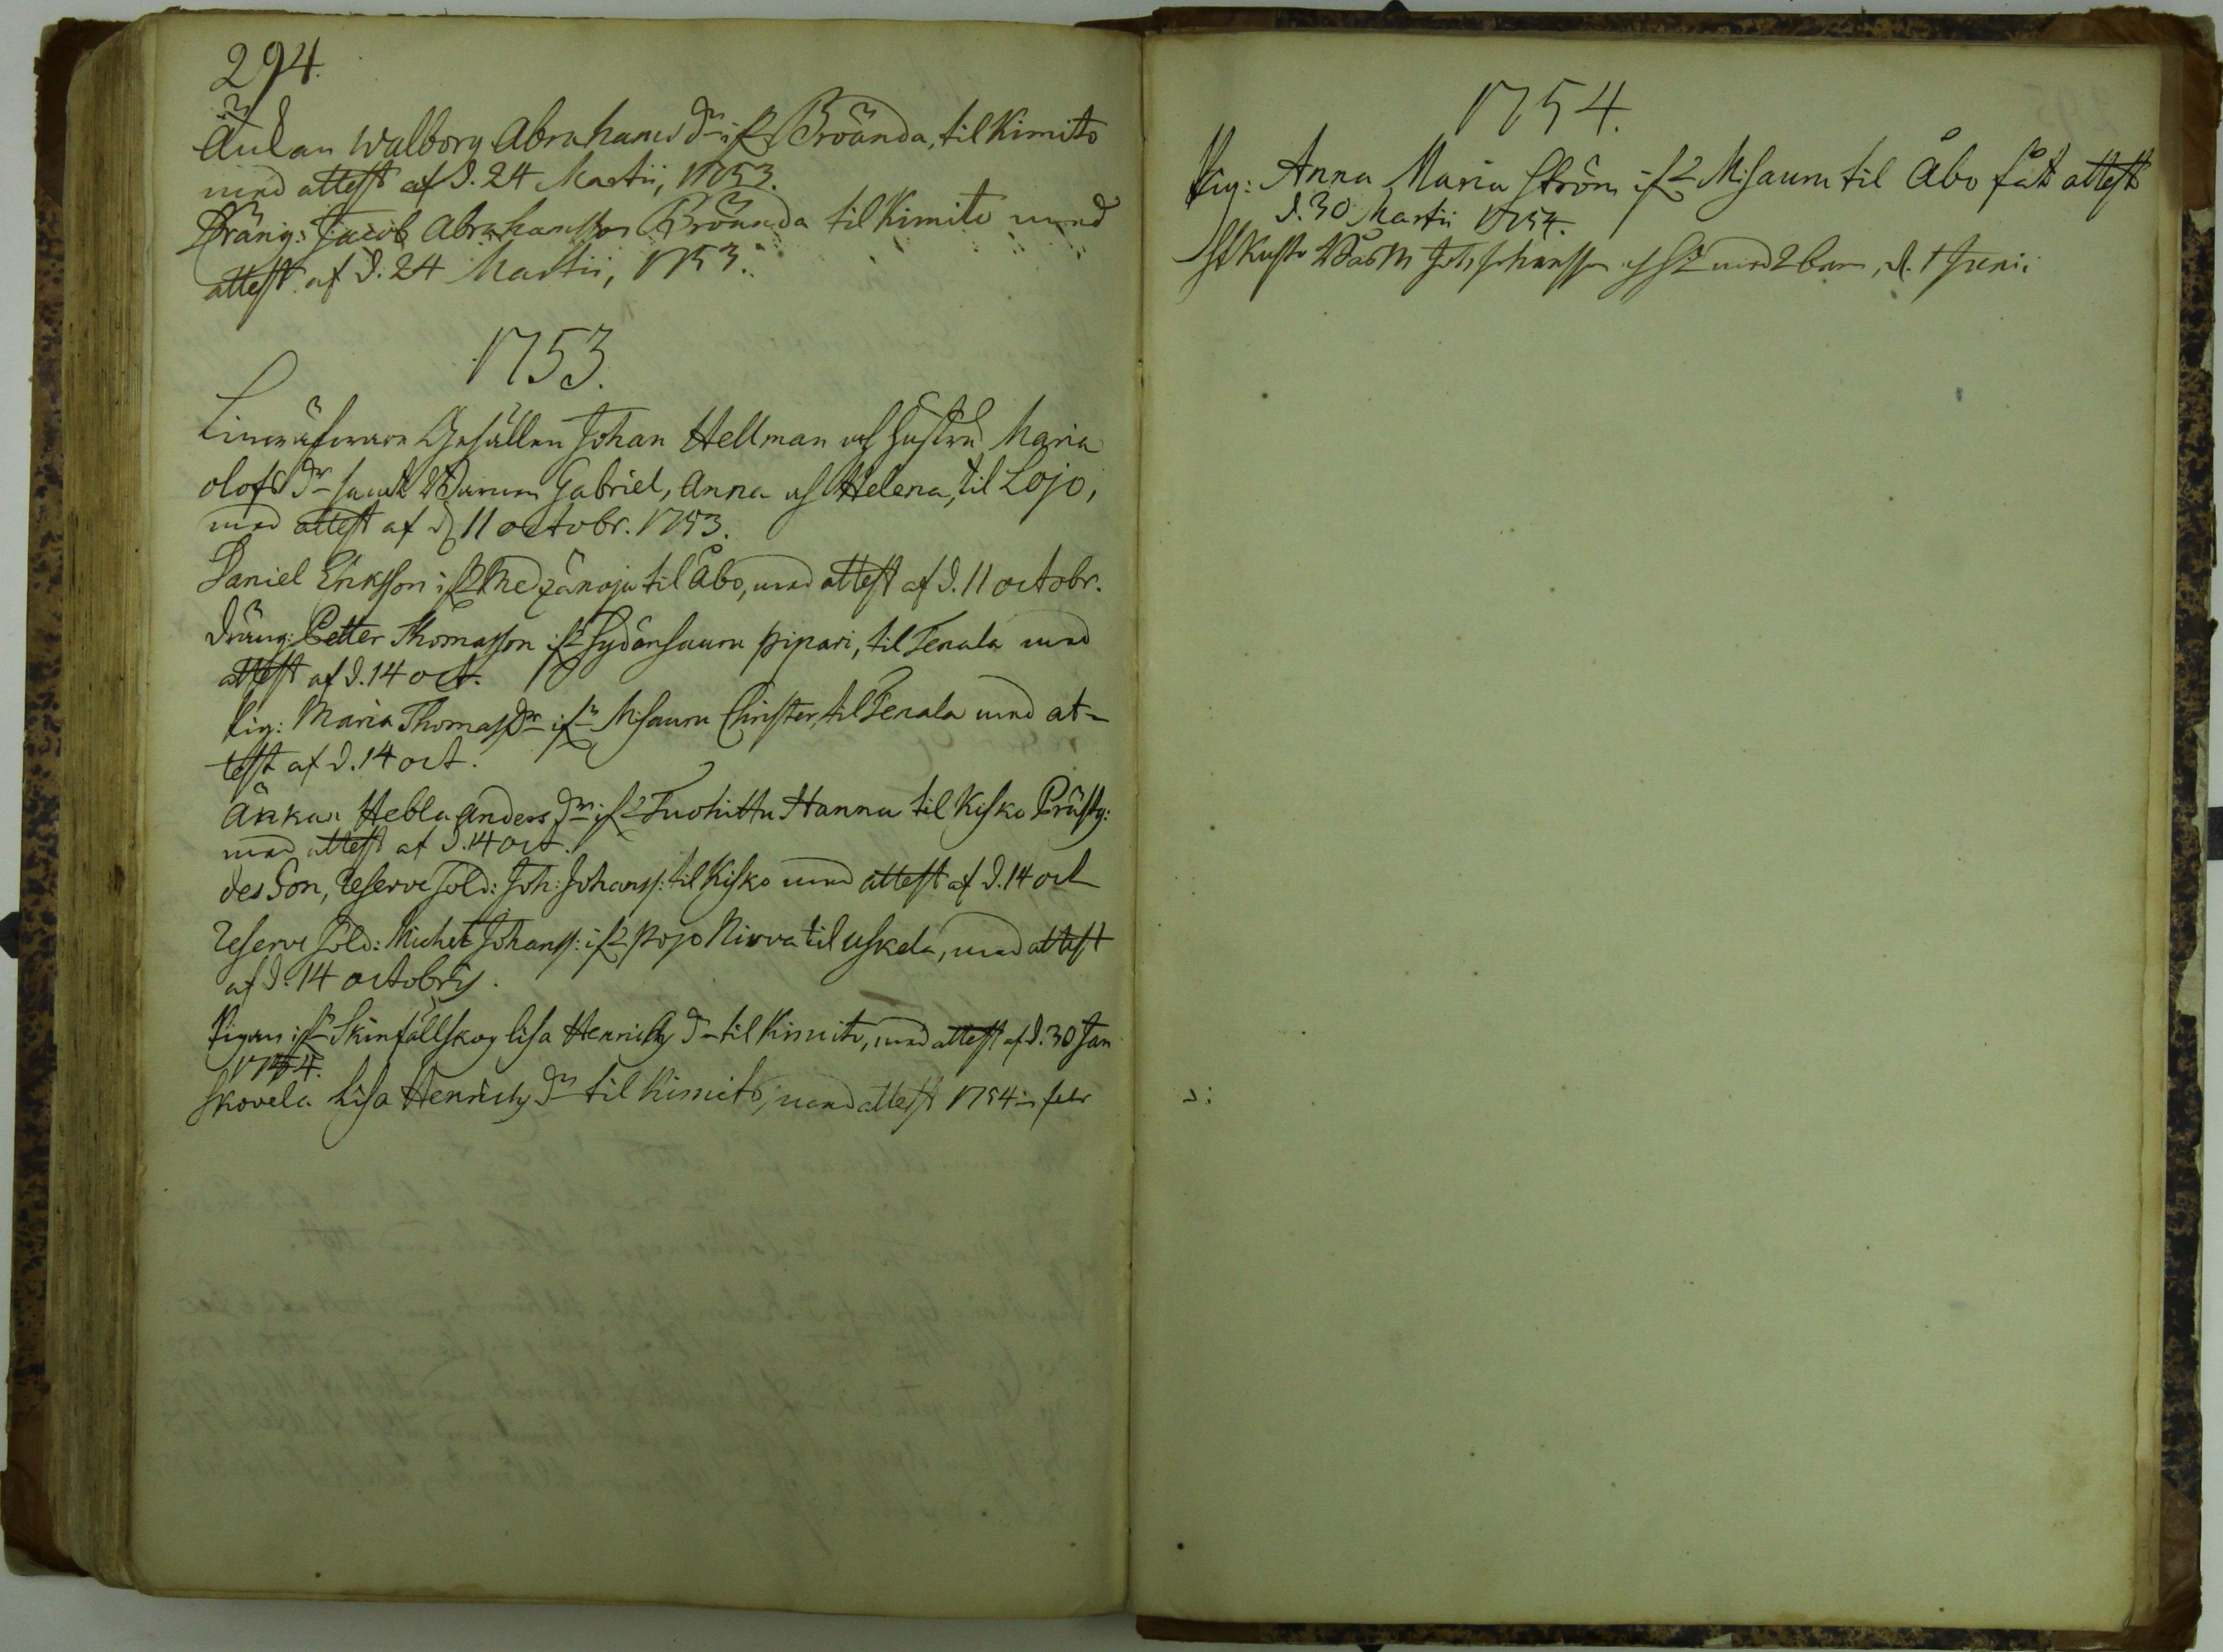 294.
Änkan Walborg Abrahams dr ifr Bröända, til Kimito
med attest af d. 24 Martii, 1753.
Dräng: Jacob Abrahamsson Bröända til Kimito med
attest af d. 24 Martii, 1753.
1753.
Linwäfware Gesällen Johan Hellman och hustru Maria
Olofs dr samt Barnen Gabriel, Anna och Helena, til Lojo,
med attest af d. 11 octobr. 1753.
Daniel Eriksson ifr til Åbo, med attest af d. 11 octobr.
Dräng: Petter Thomasson ifr Sydänsauru pipari, til Tenala med
attest af d. 14 oct.
Pig: Maria Thomas dr ifr Misauru Christer, til Tenala med at-
test af d. 14 oct.
Änkan Hebla Anders dr ifr Tuohittu Hannu til Kisko Prästg:
med attest af d. 14 oct.
des Son, Reserve Sold: Joh: Johanss: til Kisko med attest af d. 14 oct
Reserve Sold: Michel Johanss: ifr Pojo Nirva til Uskela, med attest
af d. 14 octobris.
Pigan ifr Skinfällskog Lisa Henrichs dr til Kimito, med attest af d. 30 Jan
1754.
Skovela Lisa Henrichs dr til Kimito, med attest 1754 in febr
1754.
Pig: Anna Maria Ström ifr Misauru til Åbo fåt attest
d. 30 Martii 1754.
Joh Johansson med 2 barn, d. 1 Junii